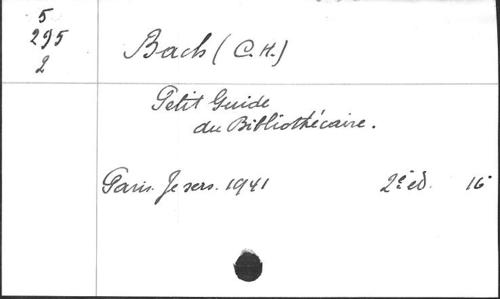 5
295
2
Bach (C.H.)
Petit Guide
du Bibliothécaire.
Paris. Je sers. 1941 2e éd. 16°